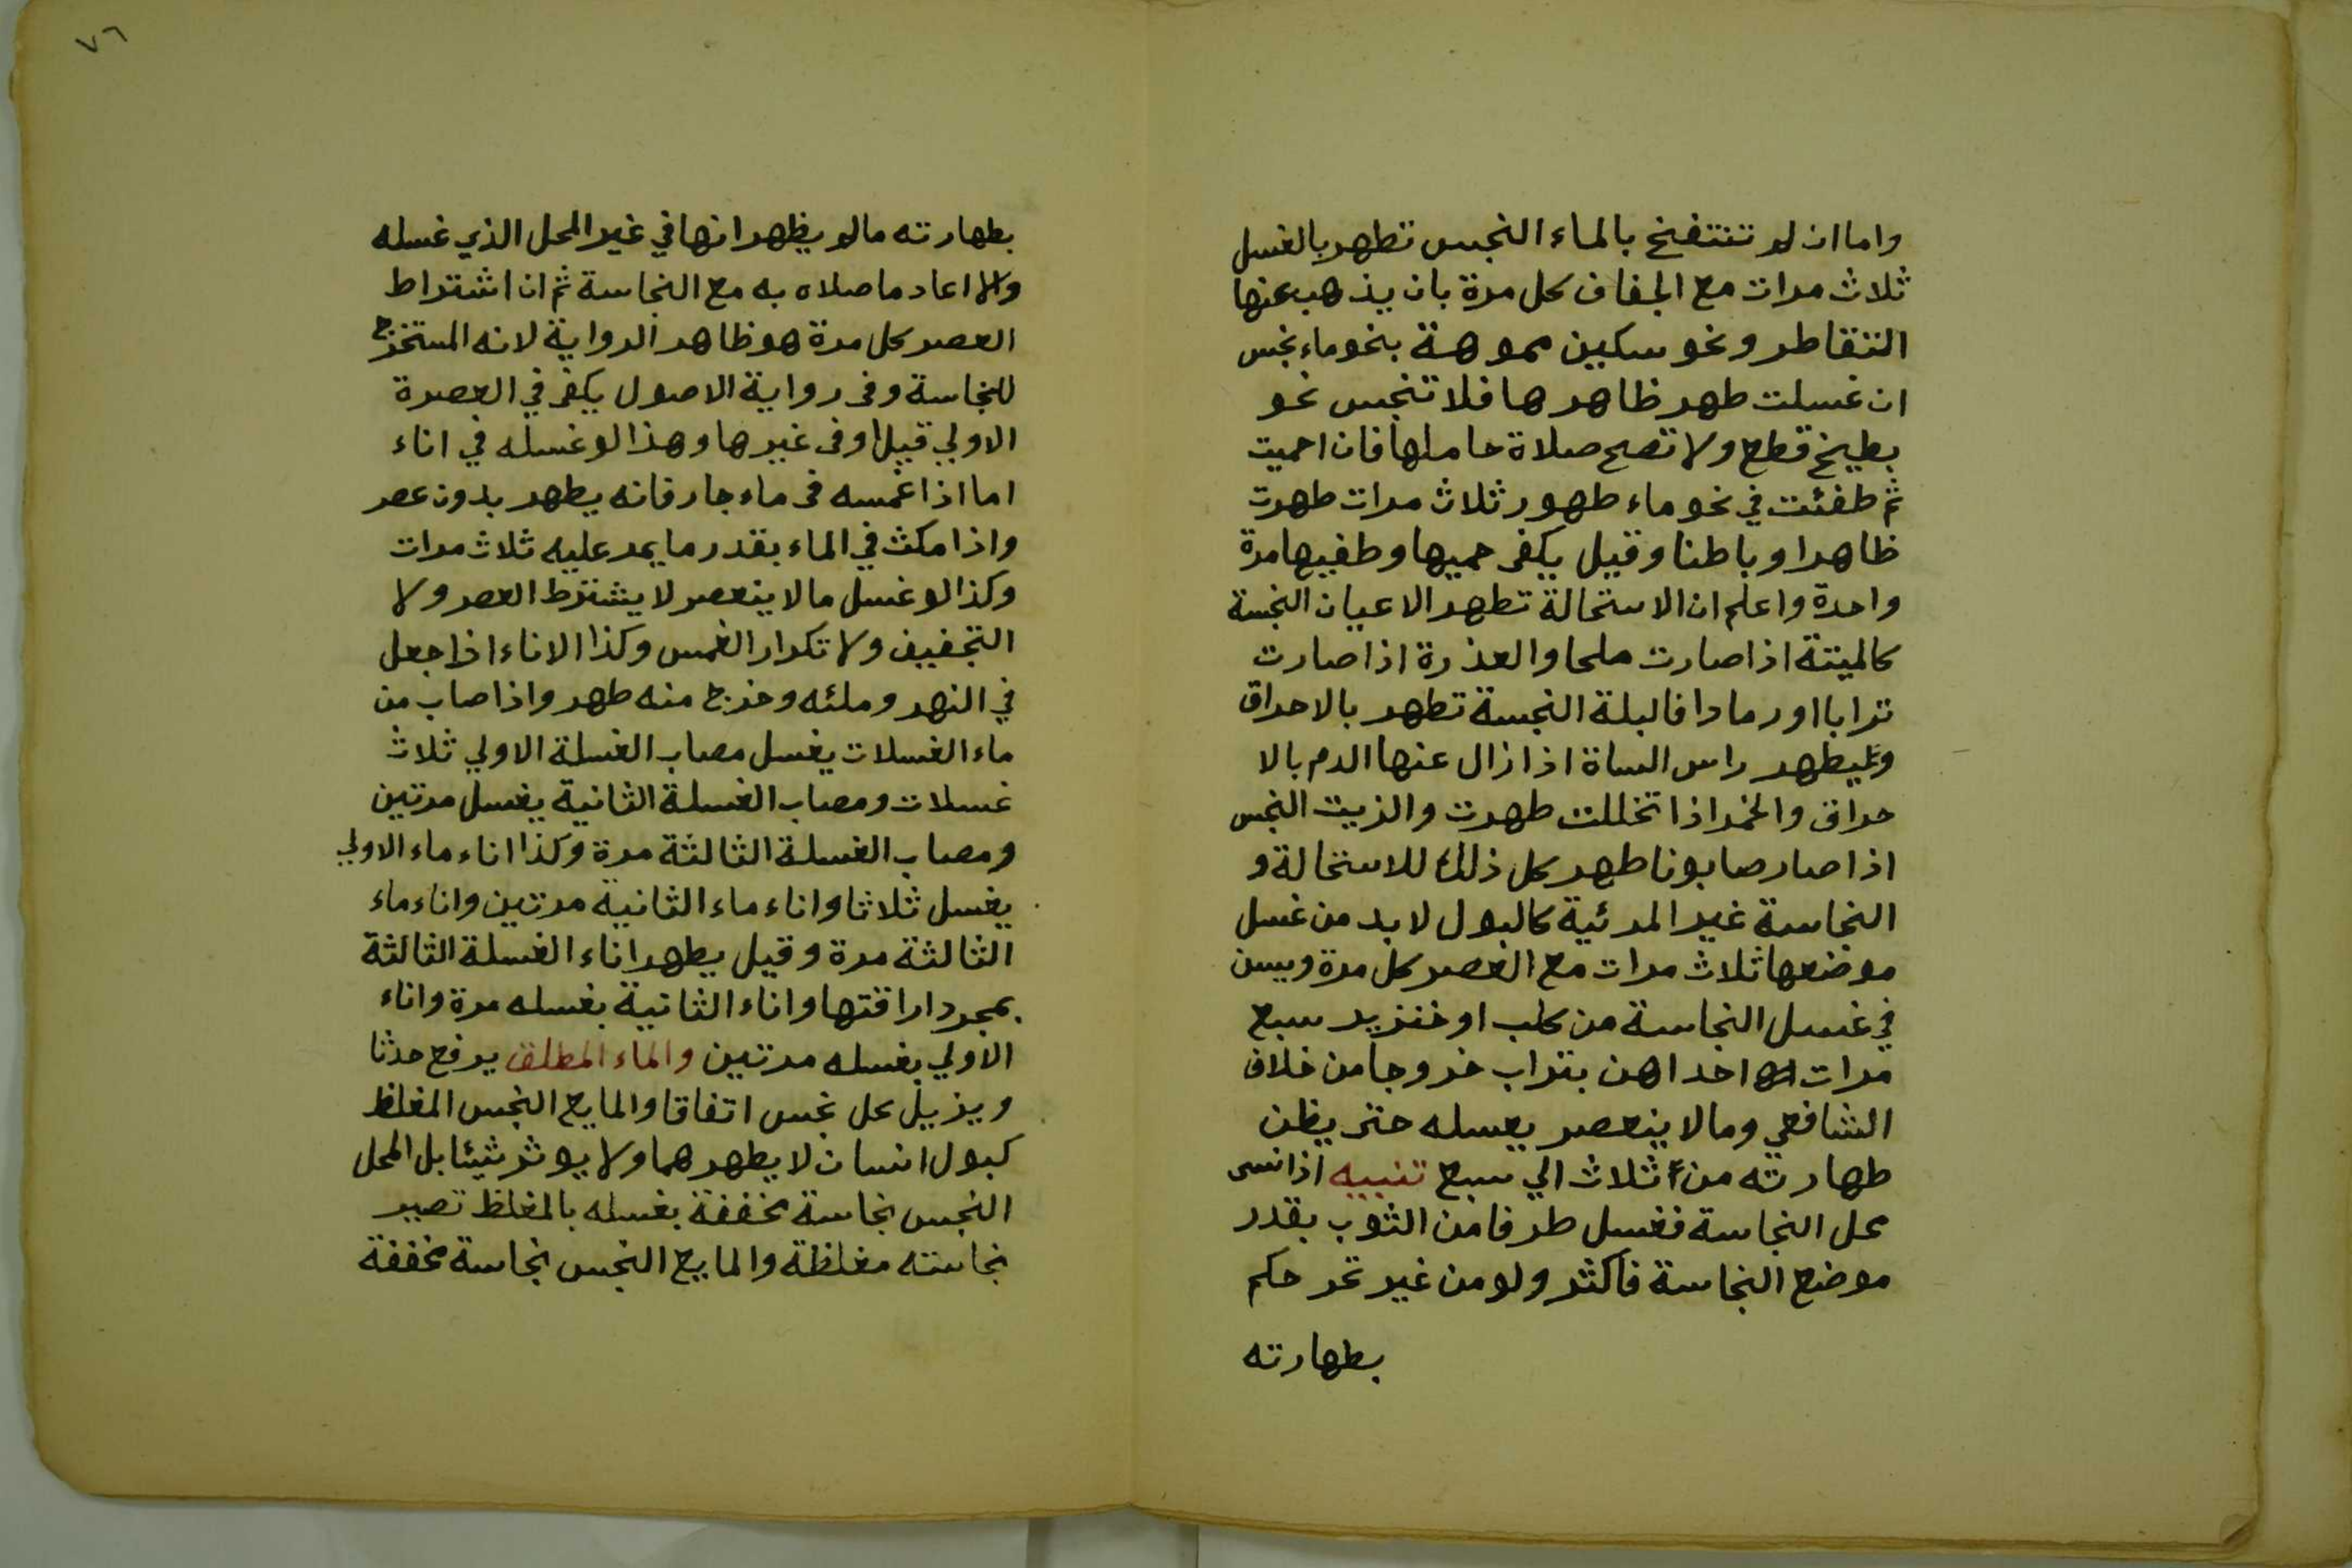 واما ان لم تنتفخ بالماء النجس تطهر بالغسل
ثلاث مرات مع الجفاف كل مرة بان يذهب عنها
التقاطر ونحو سكين مموهة بنحو ماء نجس
ان غسلت طهر ظاهرها فلا تنجس نحو
بطيخ قطع ولا تصح صلاة حاملها فان احميت
ثم طفئت في نحو ماء طهور ثلاث مرات طهرت
ظاهرا وباطنا وقيل يكفى حميها وطفيها مرة
واحدة واعلم ان الاستحالة تطهر الاعيان النجسة
كالميتة اذا صارت ملحا والعذرة اذا صارت
ترابا او رمادا فالبلة النجسة تطهر بالاحراق
ويطهر راس الساة اذا زال عنها الدم بالا
حراق والخمر اذا تخللت طهرت والزيت النجس
اذا صار صابونا طهر كل ذلك للاستحالة و
النجاسة غير المرئية كالبول لا بد من غسل
موضعها ثلاث مرات مع العصر كل مرة ويسن
في غسل النجاسة من كلب او خنزير سبع
مرات احداهن بتراب خروجا من خلاف
الشافعي وما لا ينعصر يعسله حتى يظن
طهارته من ثلاث الي سبع تنبيه اذا نسى
محل النجاسة فغسل طرفا من الثوب بقدر
موضع النجاسة فاكثر ولو من غير تحر حكم
بطهارته
٧٦
بطهارته ما لم يظهر انها في غير المحل الذي غسله
والا اعاد ما صلاه به مع النجاسة ثم ان اشتراط
العصر كل مرة هو ظاهر الرواية لانه المستخرج
للنجاسة وفى رواية الاصول يكفى في العصرة
الاولي قيل اوفى غيرها وهذا لو غسله في اناء
اما اذا غمسه فى ماء جار فانه يطهر بدون عصر
واذا مكث في الماء بقدر ما يمر عليه ثلاث مرات
وكذا لو غسل ما لا ينعصر لا يشترط العصر ولا
التجفيف ولا تكرار الغمس وكذا الاناء اذا جعل
في النهر وملئه وخرج منه طهر واذا صاب من
ماء الغسلات يغسل مصاب الغسلة الاولي ثلاث
غسلات ومصاب الغسلة الثانية يغسل مرتين
ومصاب الغسلة الثالثة مرة وكذا اناء ماء الاولي
يغسل ثلاثا واناء ماء الثانية مرتين واناء ماء
الثالثة مرة وقيل يطهر اناء الغسلة الثالثة
بمجرد اراقتها واناء الثانية بغسله مرة واناء
الاولي بغسله مرتين والماء المطلق يرفع حدثا
ويزيل كل نجس اتفاقا والمايع النجس المغلظ
كبول انسان لا يطهرهما ولا يوثر شيئا بل المحل
النجس نجاسة مخففة بغسله بالمغلظ تصير
نجاسته مغلظة والمايع النجس نجاسة مخففة